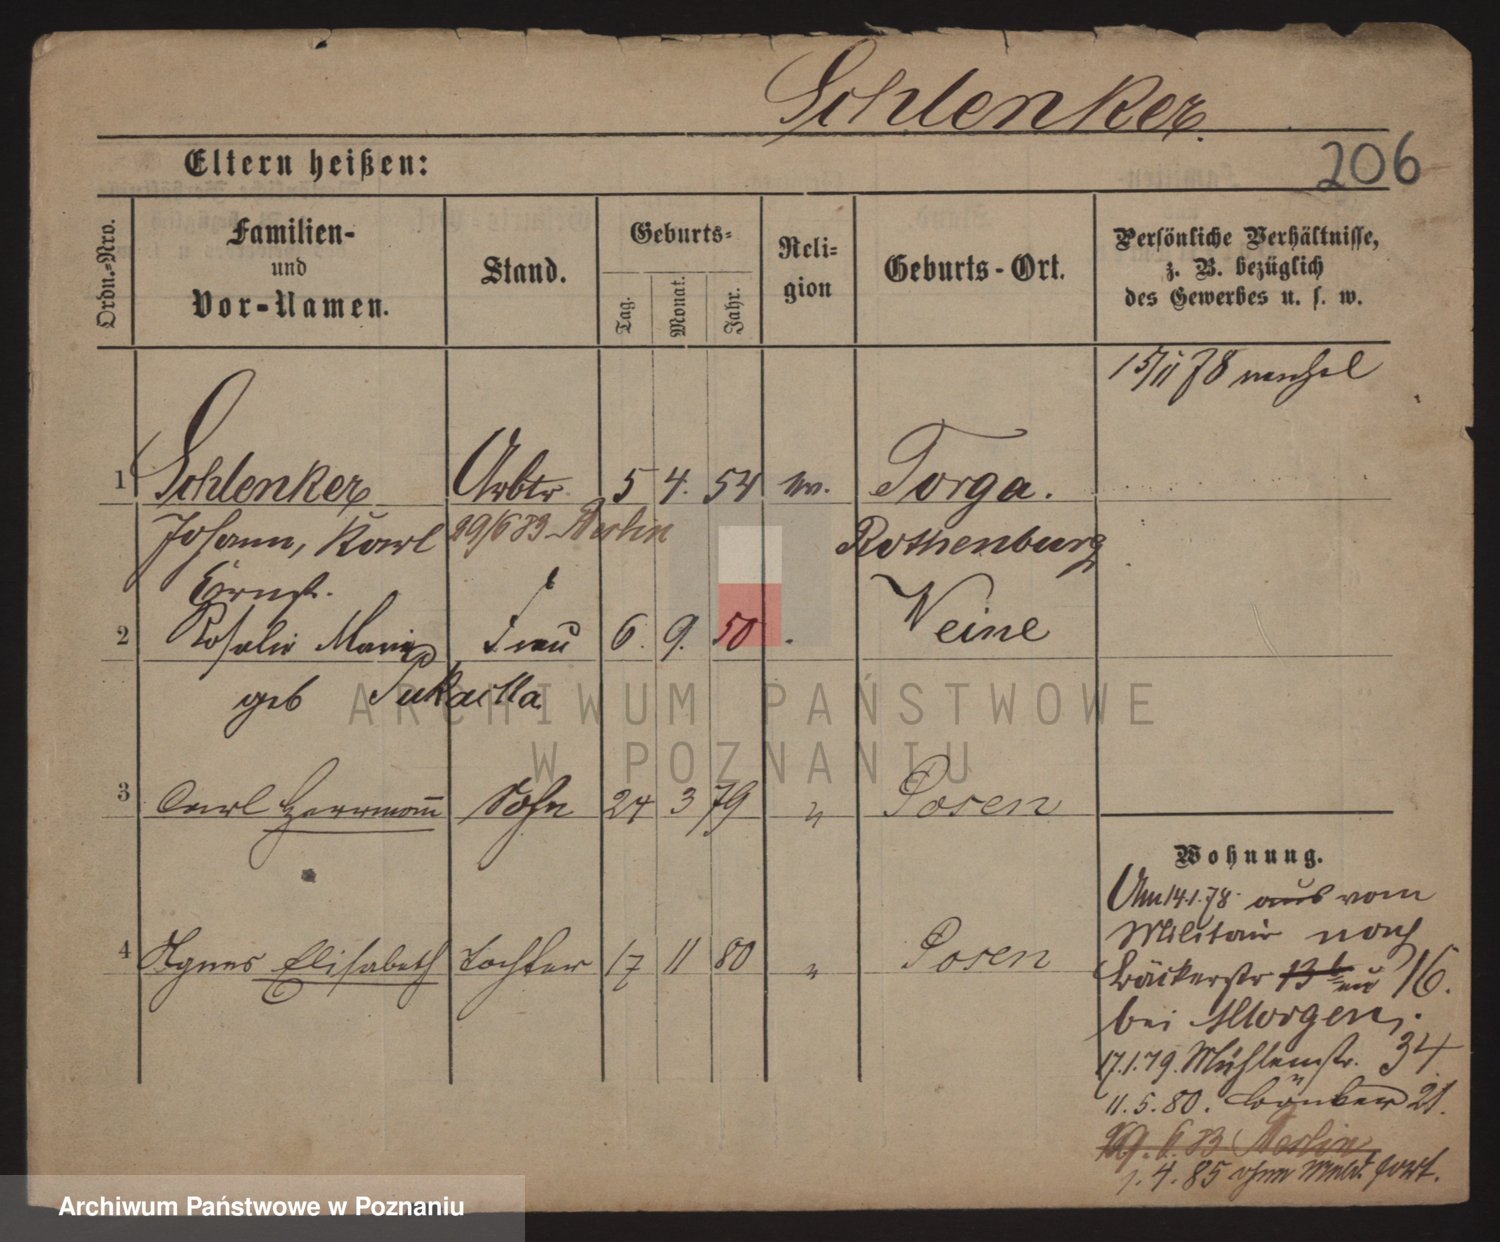 Schlenker
206
Eltern heißen:
Ordn.-Nro.
Familien-
und
Vor-Namen.
Stand.
Geburts-
Tag.
Monat.
Jahr.
Reli-
gion
Geburts-Ort.
Persönliche Verhältnisse,
z. B. bezüglich
des Gewerbes u. s. w.
15/11 78
1 Schlenker Arbtr 5 4. 54 ev. Torga.
Johann, Karl 29/6 83 Berlin Rothenburg
Ernst.
2 Rosalie Marie Frau 6. 9. 50 Weine
geb
3 Carl Herrmann Sohn 24 3 79 " Posen
4 Agnes Elisabeth Tochter 17 11 80 " Posen
Wohnung.
Am 14.1.78. aus vom
Militair nach
Bäckerstr 13b 16.
bei Morgen.
17.1.79. Mühlenstr. 34.
11.5.80. 21.
29.6.83 Berlin
1.4.85 ohne Meld. fort.
ARCHIWUM PAŃSTWOWE
W POZNANIU
Archiwum Państwowe w Poznaniu